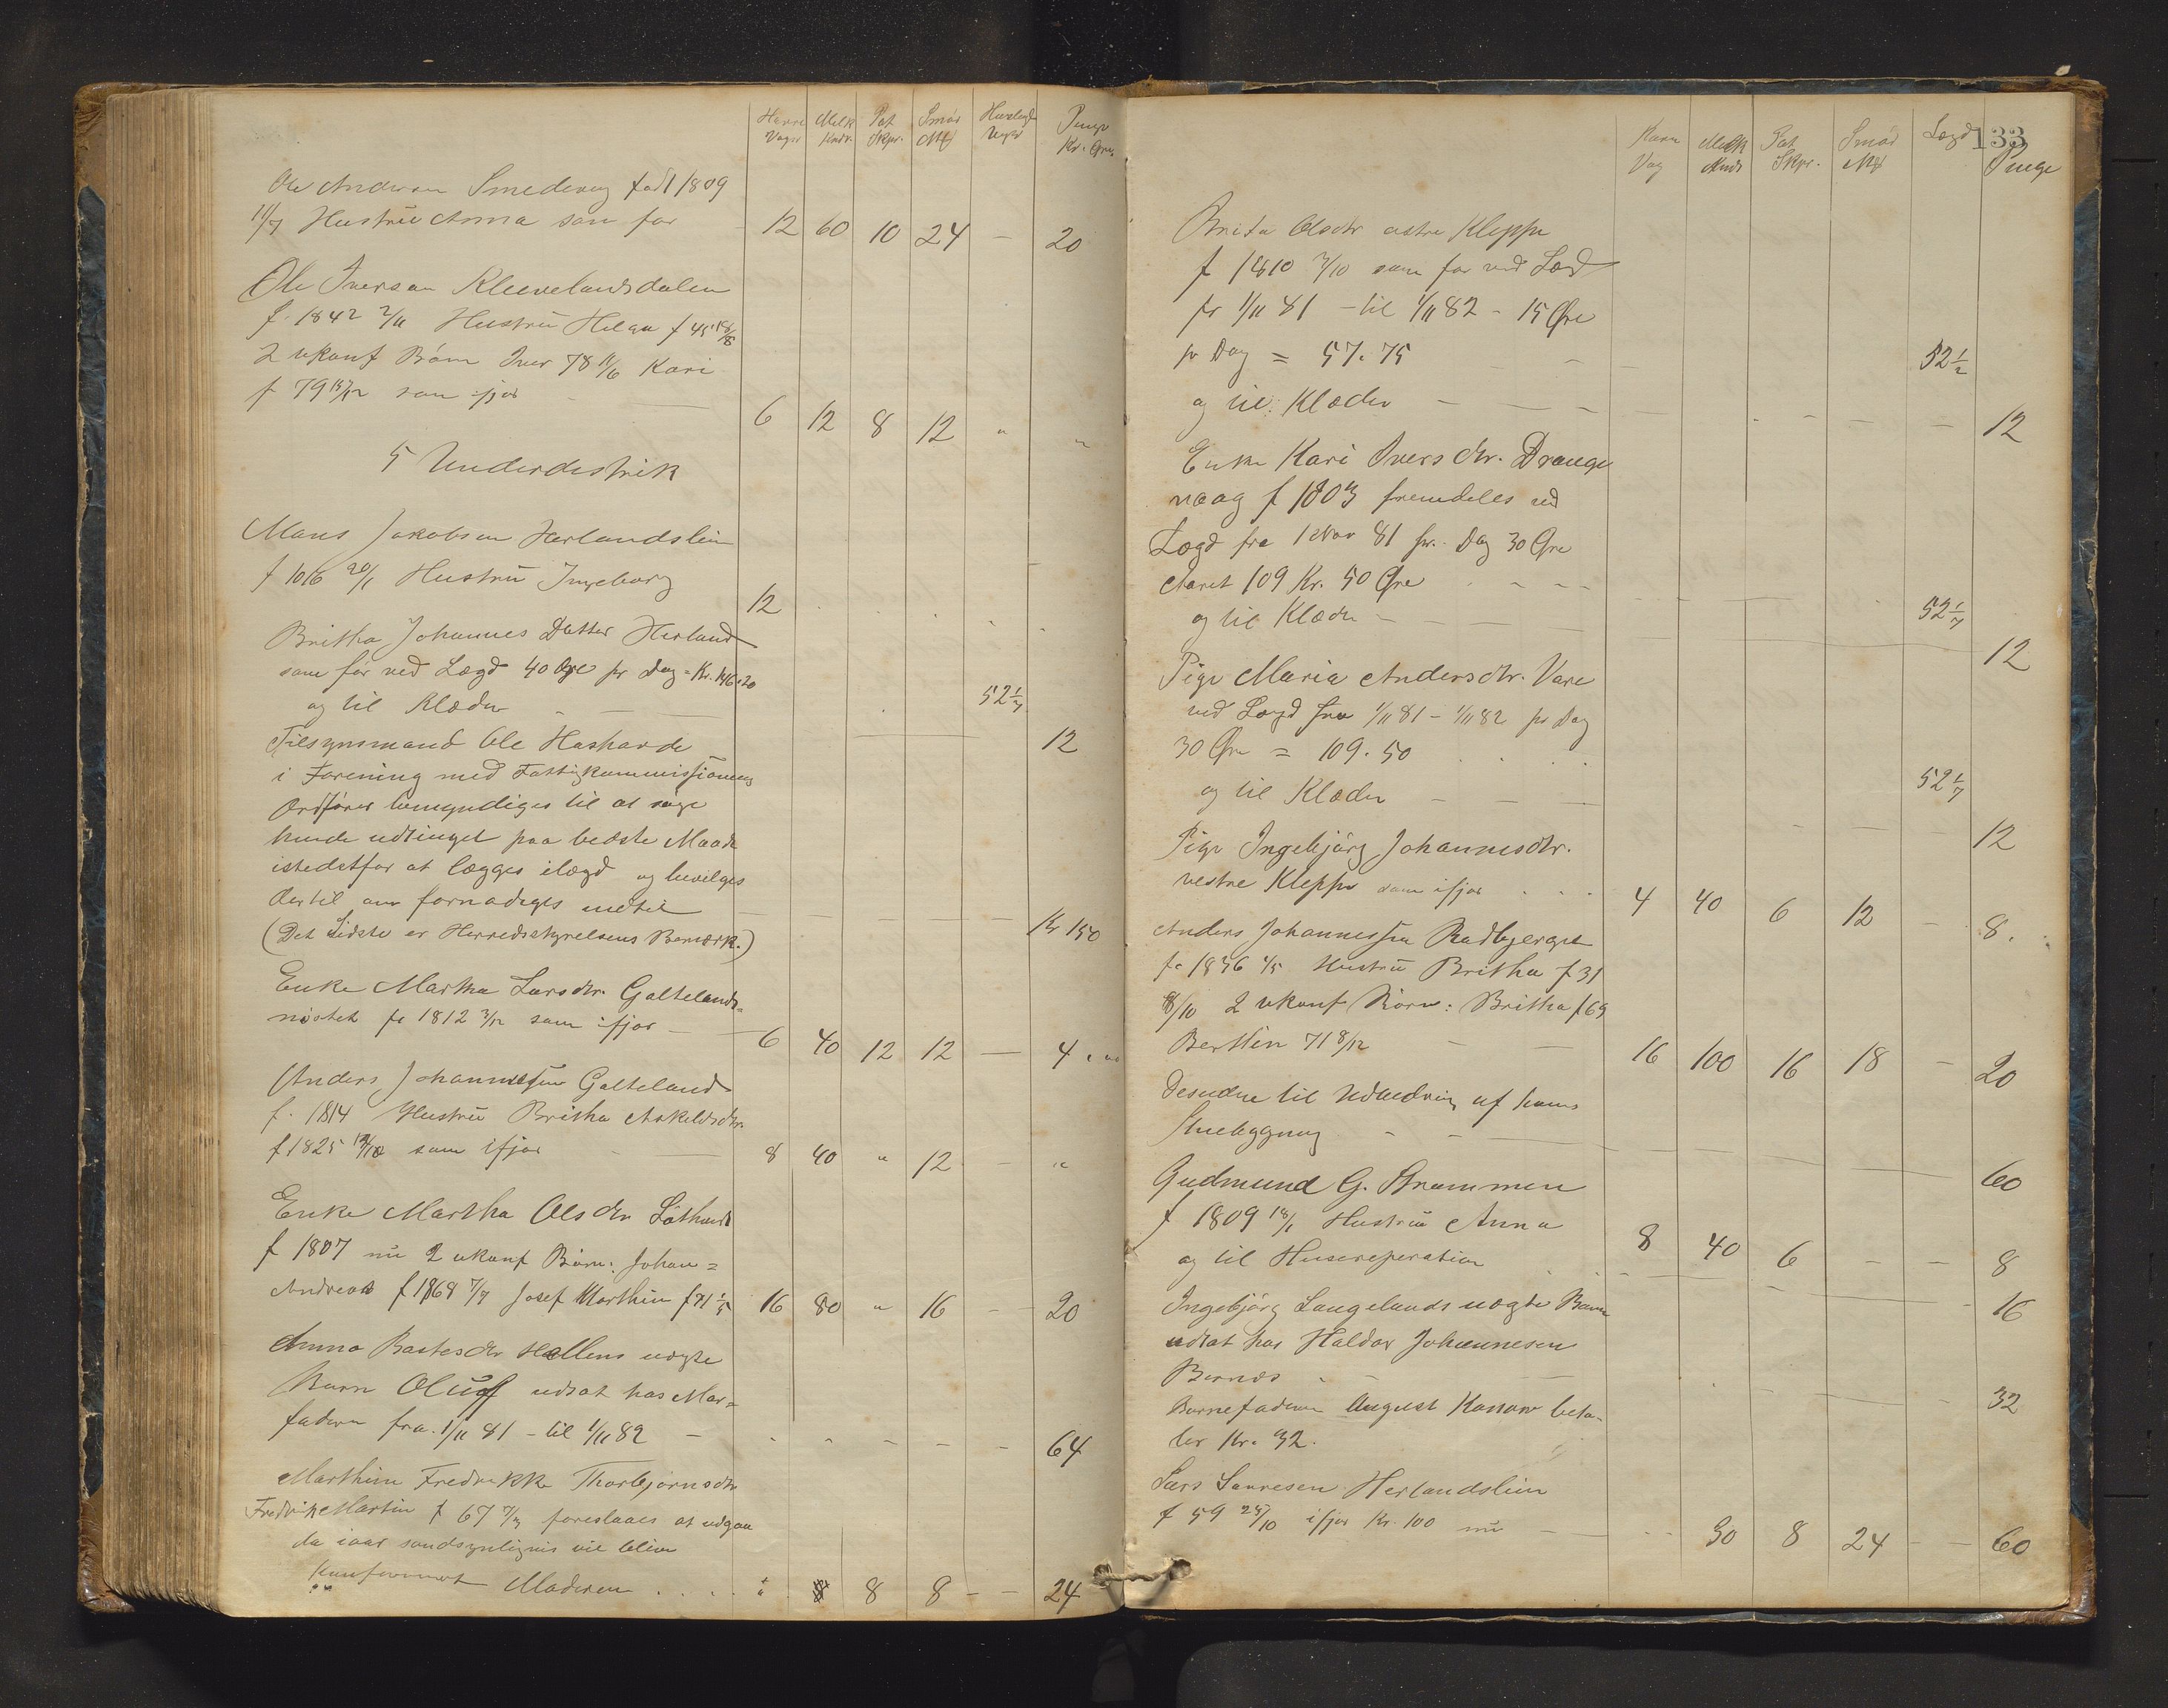 Melk Pot Smör Penge
Kr. Øre
Ole Smedevig född 1809
11/7 Hustrü Anna som før 12 60 10 24 — 20
Ole Iversen Klevelandsdalen
f. 1842 2/11 Hustrü Helga f 45
2 ukonf Börn Iver 78 11/6 Kari
f 79 som ifjor
6 12 8 12 " "
5 Underdestrik
Mons Jakobsen Herlandslien
f 1016 20/1 Hustrü Ingeborg
12
Britha Johannes Datter Herland
som før ved Lægd 40 Øre pr Dag = Kr. 146.20
og til Klæder 52 1/7
12
Tilsynsmand Ole Haskarde
i Forening med Fattigkommissionens
Ordfører bemyndiges til at søge
hende udtinget paa bedste Maade
istedetfor at lægges ilægd og bevilges
dertil om fornødiges indtil
(Det Sidste er Herredsstyrelsens Bemærk.) Kr 150
Enke Martha Larsdtr. Galtelands=
nöstet fø 1812 3/12 som ifjor —
6 40 12 12 — 4
Anders Johannessen Galteland
f. 1814 Hustrü Britha Askeldsdtr.
f 1825 som ifjor 8 40 " 12 — "
Enke Martha Olsdtr
f 1807 nü 2 ukonf Börn: Johan=
Andreas f 1868 7/7 Josef Marthin f 71 1/5 16 80 " 16 — 20
Anna Bastesdtr Hellens uægte
Barn Oluff udsat hos Mor=
faderen fra 1/11 81 - til 1/11 82 — 64
Marthin Fredrikke Thorbjørnsdtr
Fredrik Martin f 67 foreslaaes at udgaa
da iaar sandsynligvis vil blive
konfirmert Moderen 8 8 — — 24
133
Korn Melk Pot Smör Lægd
Vog Skpr. Penge
Brita Olsdtr østre Kleppe
f 1810 7/10 som før ved Lægd
fr 1/11 81 - til 1/11 82 - 15 Øre
pr Dag = 57.75 52 1/2
og til Klæder — 12
Enke Kari Iversdtr. Drange
vaag f 1803 fremdeles ved
Lægd fra 1 Nov 81 pr. Dag 30 Øre
Aaret 109 Kr. 50 Øre
og til Klæder — 52 1/7
12
Pige Maria Andersdtr. Vare
ved Lægd fra 1/11 81 - 1/11 82 pr Dag
30 Øre = 109.50
og til Klæder — 52 1/7
12
Pige Ingebjörg Johannesdtr.
vestre Kleppe som ifjor 4 40 6 12 — 8.
Anders Johannessen Rødbjerget
fø 1836 1/5 Hustrü Britha f 31
8/10 2 ukonf Börn: Britha f 69
Berthin 71 8/12 16 100 16 18 — 20
Desuden til Udbedring af hans
Stuebygning — 60
Gudmund G. Strømmen
f 1809 18/1 Hustrü Anna 8 40 6 — — 8
og til Husereperation
16
Ingebjörg Langelands uægte Barn
udsat hos Haldor Johannesen
Bernes 32
Barnefaderen August Konow beta-
ler Kr. 32.
Lars Larresen Herlandslien
f 59 25/10 ifjor Kr. 100 nü — 30 8 24 — 60